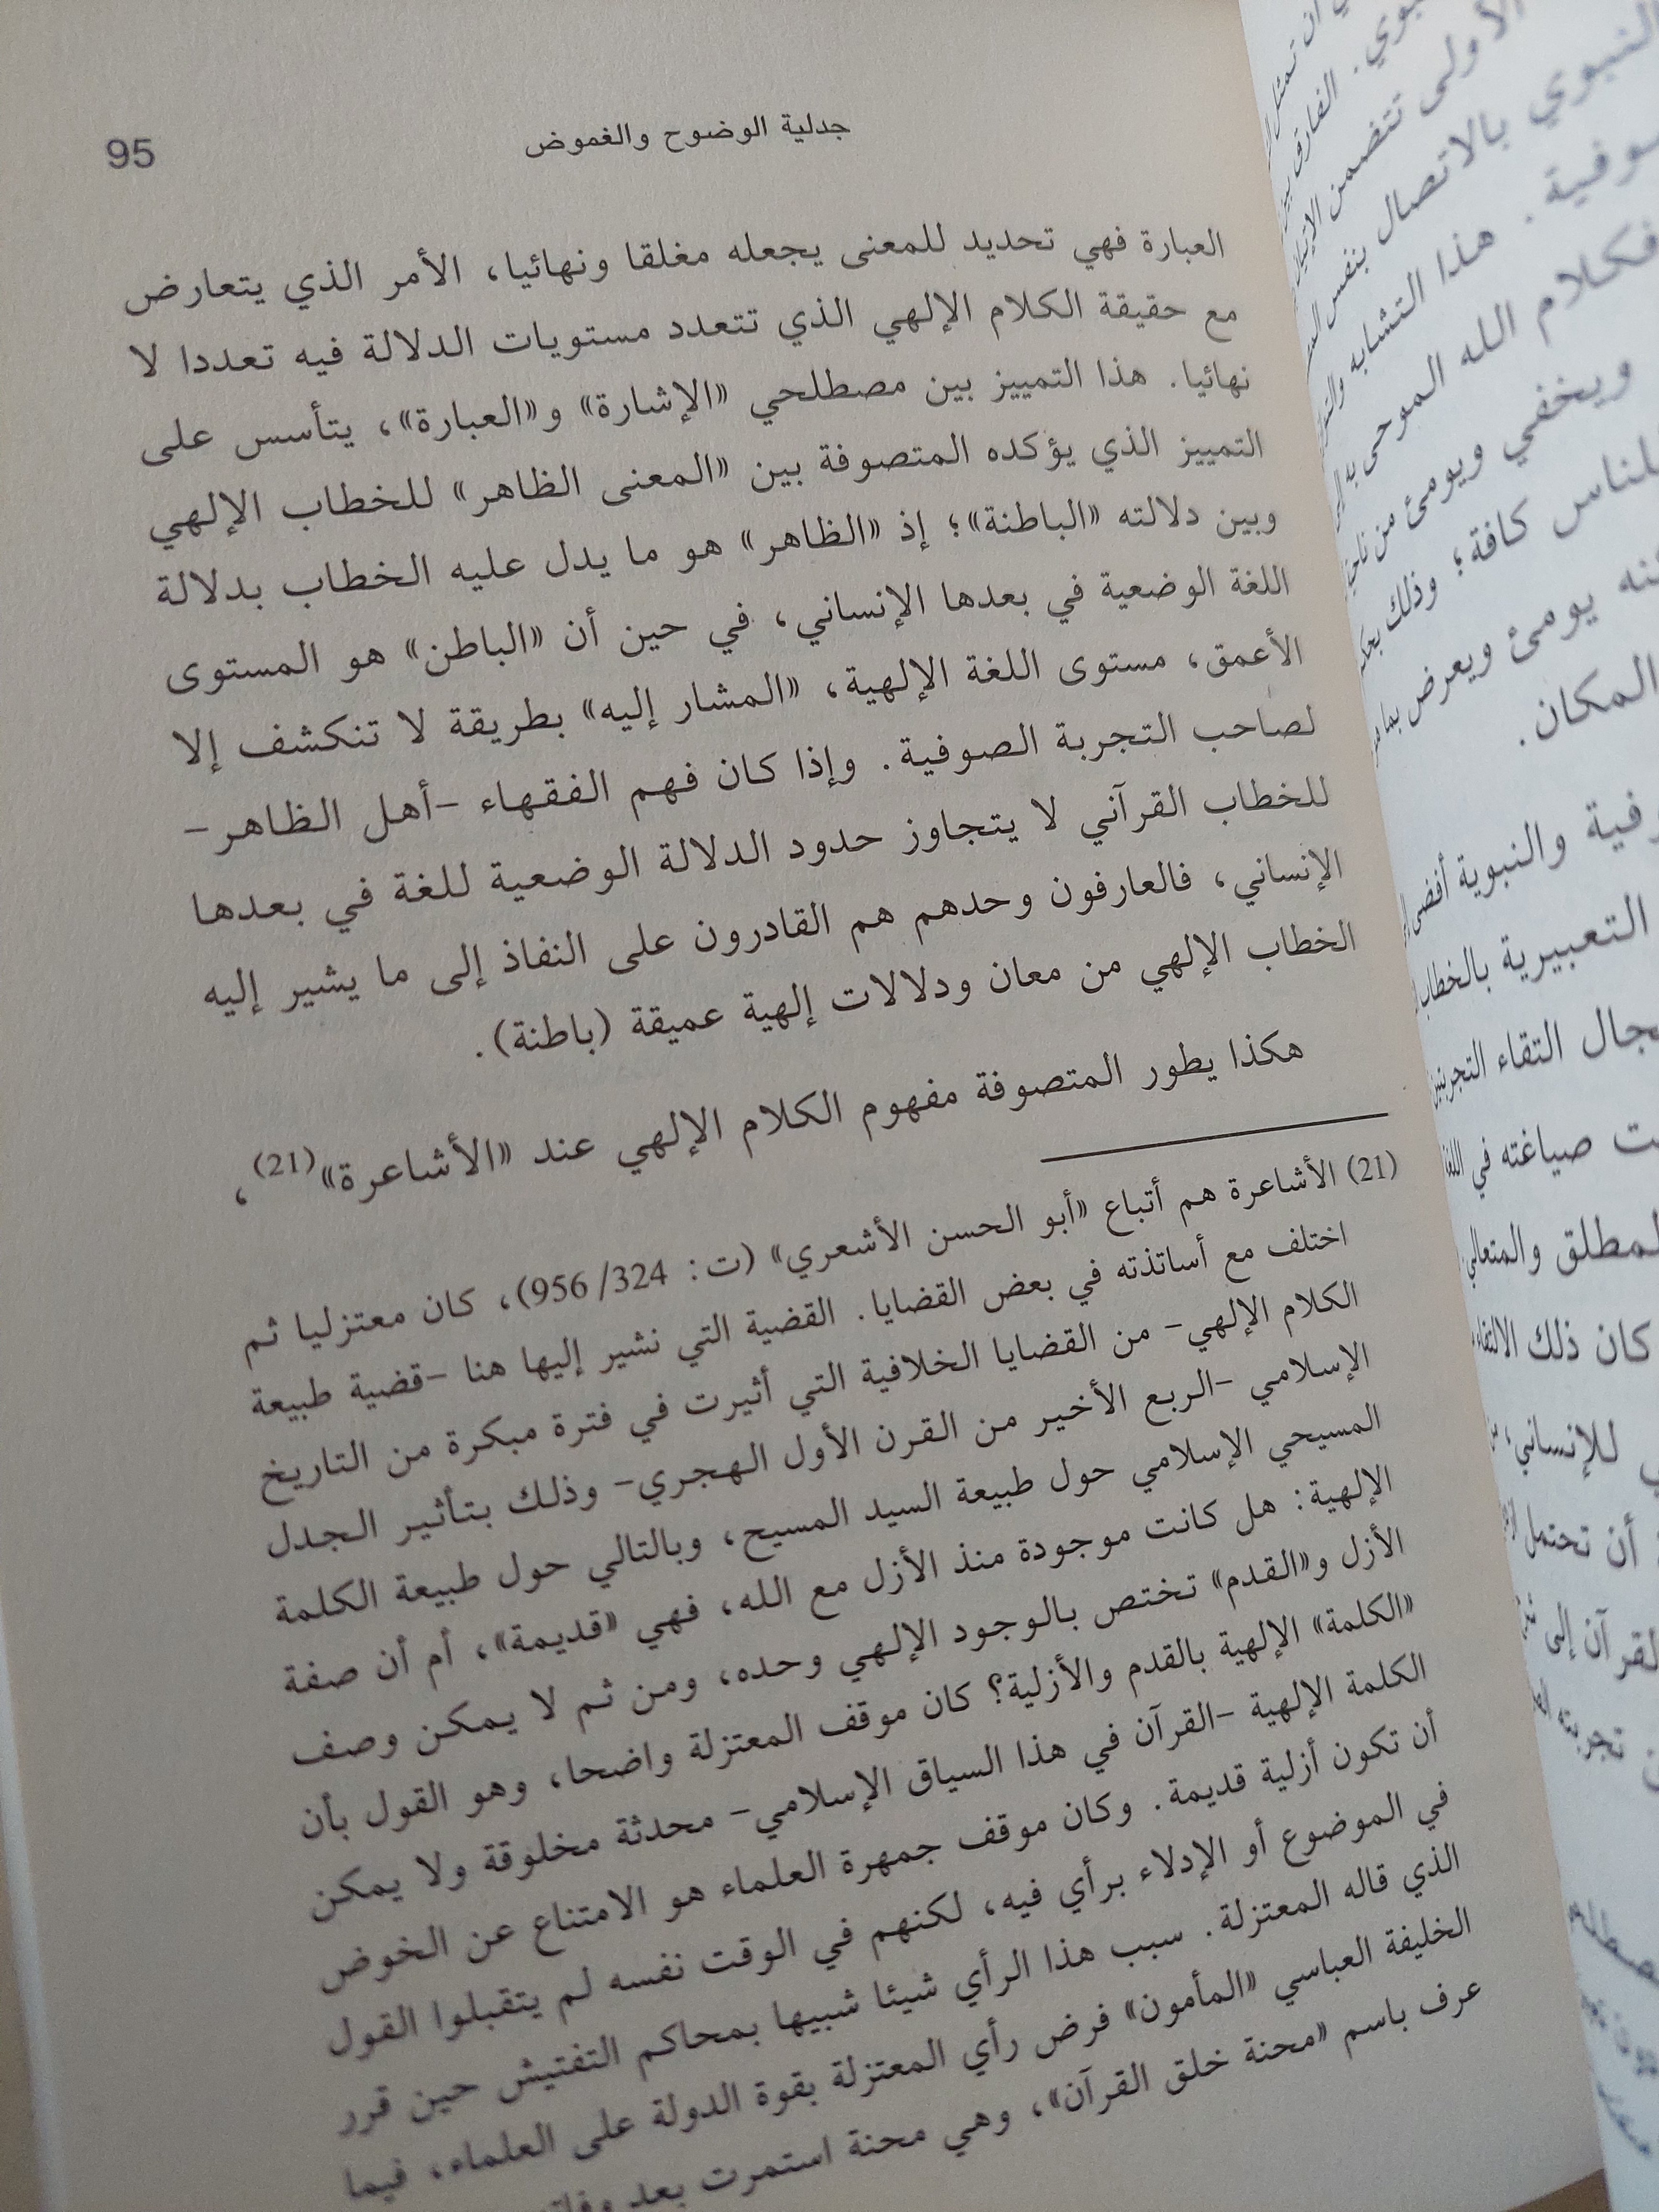 جدلية الوضوح والغموض
95
العبارة فهي تحديد للمعنى يجعله مغلقا ونهائيا، الأمر الذي يتعارض
مع حقيقة الكلام الإلهي الذي تتعدد مستويات الدلالة فيه تعددا لا
نهائيا. هذا التمييز بين مصطلحي «الإشارة» و«العبارة»، يتأسس على
التمييز الذي يؤكده المتصوفة بين «المعنى الظاهر» للخطاب الإلهي
وبين دلالته «الباطنة»؛ إذ «الظاهر» هو ما يدل عليه الخطاب بدلالة
اللغة الوضعية في بعدها الإنساني، في حين أن «الباطن» هو المستوى
الأعمق، مستوى اللغة الإلهية، «المشار إليه» بطريقة لا تنكشف إلا
لصاحب التجربة الصوفية. وإذا كان فهم الفقهاء -أهل الظاهر-
للخطاب القرآني لا يتجاوز حدود الدلالة الوضعية للغة في بعدها
الإنساني، فالعارفون وحدهم هم القادرون على النفاذ إلى ما يشير إليه
الخطاب الإلهي من معان ودلالات إلهية عميقة (باطنة).
هكذا يطور المتصوفة مفهوم الكلام الإلهي عند «الأشاعرة»(21)،
(21) الأشاعرة هم أتباع «أبو الحسن الأشعري» (ت: 324/ 956)، كان معتزليا ثم
اختلف مع أساتذته في بعض القضايا. القضية التي نشير إليها هنا -قضية طبيعة
الكلام الإلهي- من القضايا الخلافية التي أثيرت في فترة مبكرة من التاريخ
الإسلامي -الربع الأخير من القرن الأول الهجري- وذلك بتأثير الجدل
المسيحي الإسلامي حول طبيعة السيد المسيح، وبالتالي حول طبيعة الكلمة
الإلهية: هل كانت موجودة منذ الأزل مع الله، فهي «قديمة»، أم أن صفة
الأزل و«القدم» تختص بالوجود الإلهي وحده، ومن ثم لا يمكن وصف
«الكلمة» الإلهية بالقدم والأزلية؟ كان موقف المعتزلة واضحا، وهو القول بأن
الكلمة الإلهية -القرآن في هذا السياق الإسلامي- محدثة مخلوقة ولا يمكن
أن تكون أزلية قديمة. وكان موقف جمهرة العلماء هو الامتناع عن الخوض
في الموضوع أو الإدلاء برأي فيه، لكنهم في الوقت نفسه لم يتقبلوا القول
الذي قاله المعتزلة. سبب هذا الرأي شيئا شبيها بمحاكم التفتيش حين قرر
الخليفة العباسي «المأمون» فرض رأي المعتزلة بقوة الدولة على العلماء، فيما
عرف باسم «محنة خلق القرآن»، وهي محنة استمرت بعد
الأولى تتضمن
النبوي بالاتصال بنفس
هذا التشابه
فكلام الله الموحى به
ويخفي ويومئ من
للناس كافة؛ وذلك
يومئ ويعرض بما
المكان.
والنبوية أفضى
التعبيرية بالخطاب
مجال التقاء التجربتين
صياغته في اللغة
المطلق والمتعالي
كان ذلك
للإنساني،
أن تحتمل
القرآن إلى
تجربته